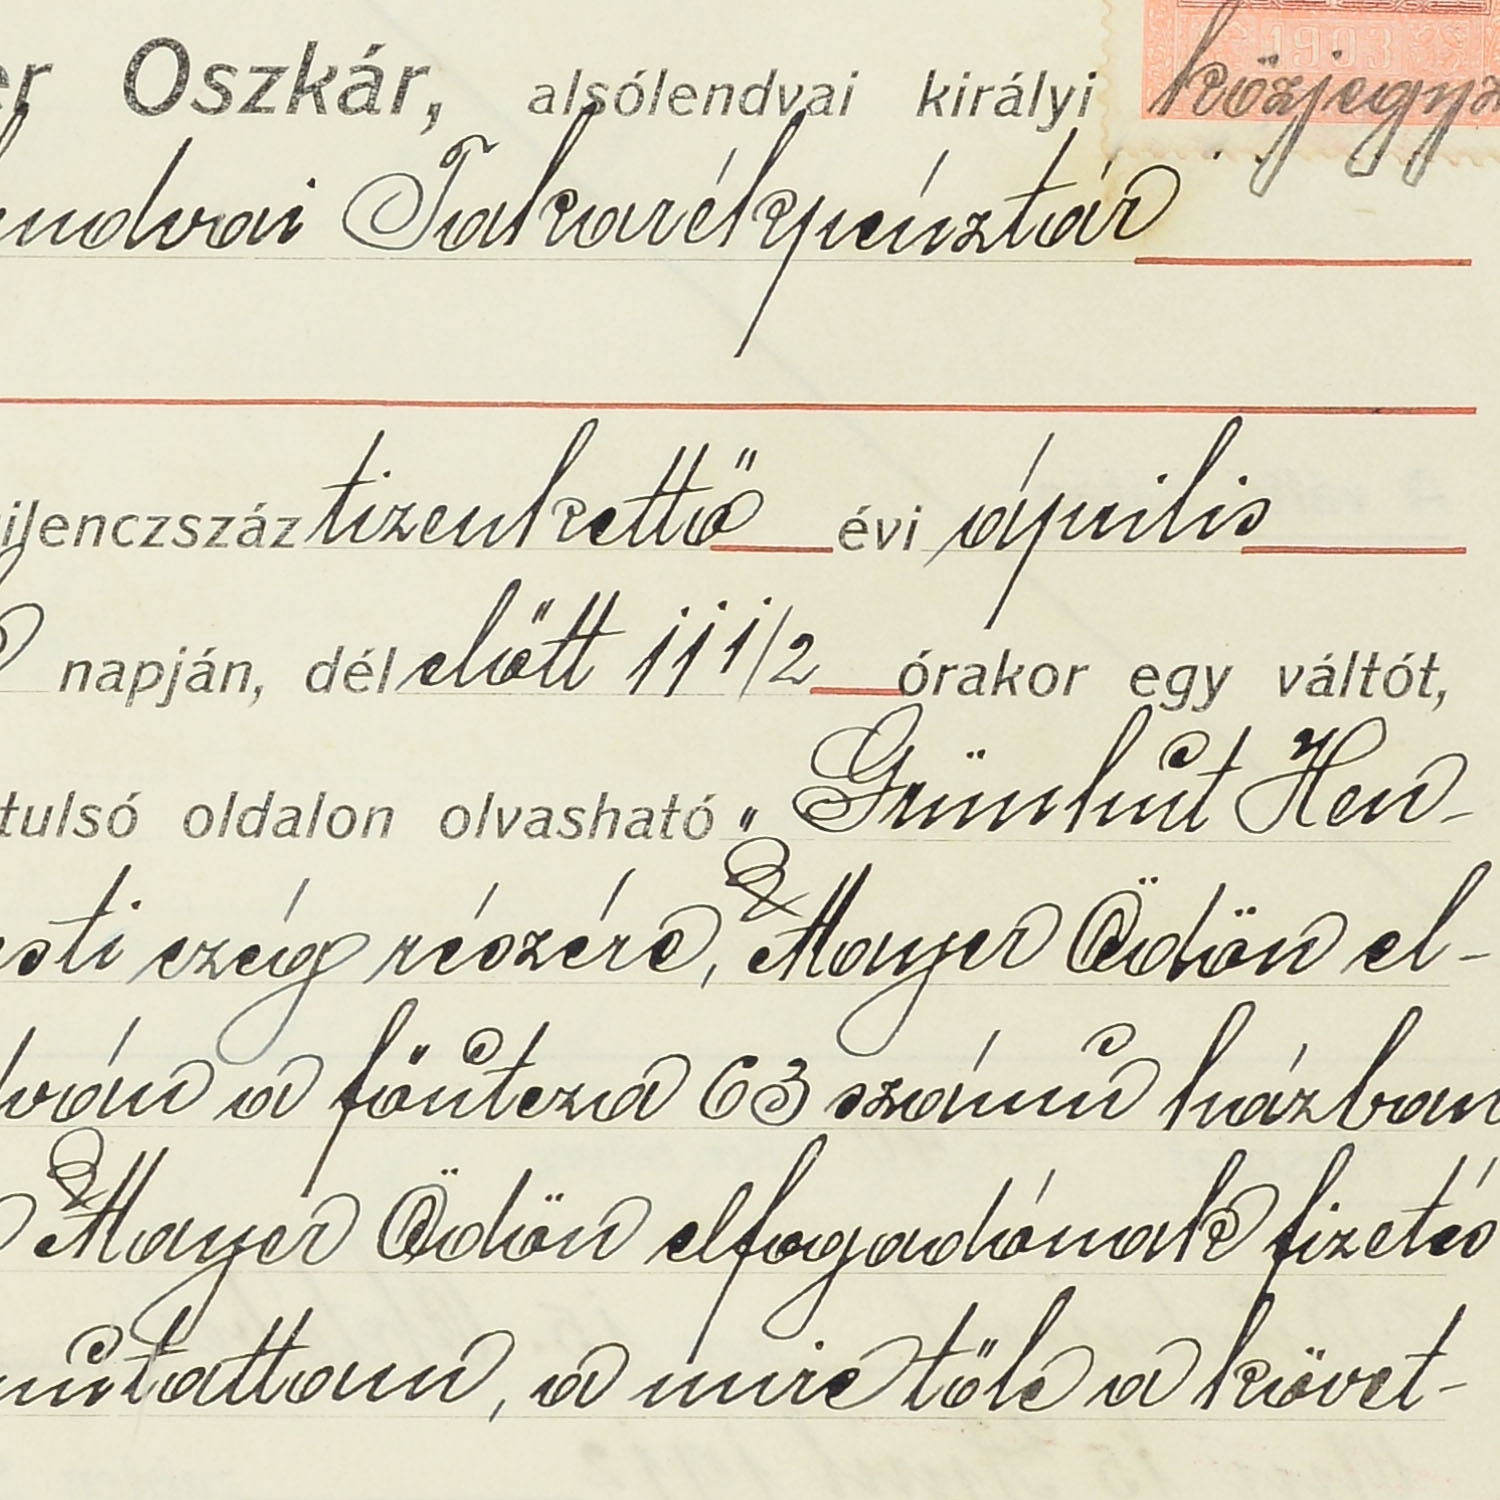 er Oszkár, alsólendvai királyi közjegyz
endvai Takarékpénztár
ilenczszáz tizenkettö évi április
napján, délelött 11 1/2 órakor egy váltót,
tulsó oldalon olvasható „Grünhut Hen-
esti czég részére, Mayer Ödön el-
dván a föutcza 63 számu házban
Mayer Ödön elfogadónak fizetés
mutattam, a mire töle a követ-